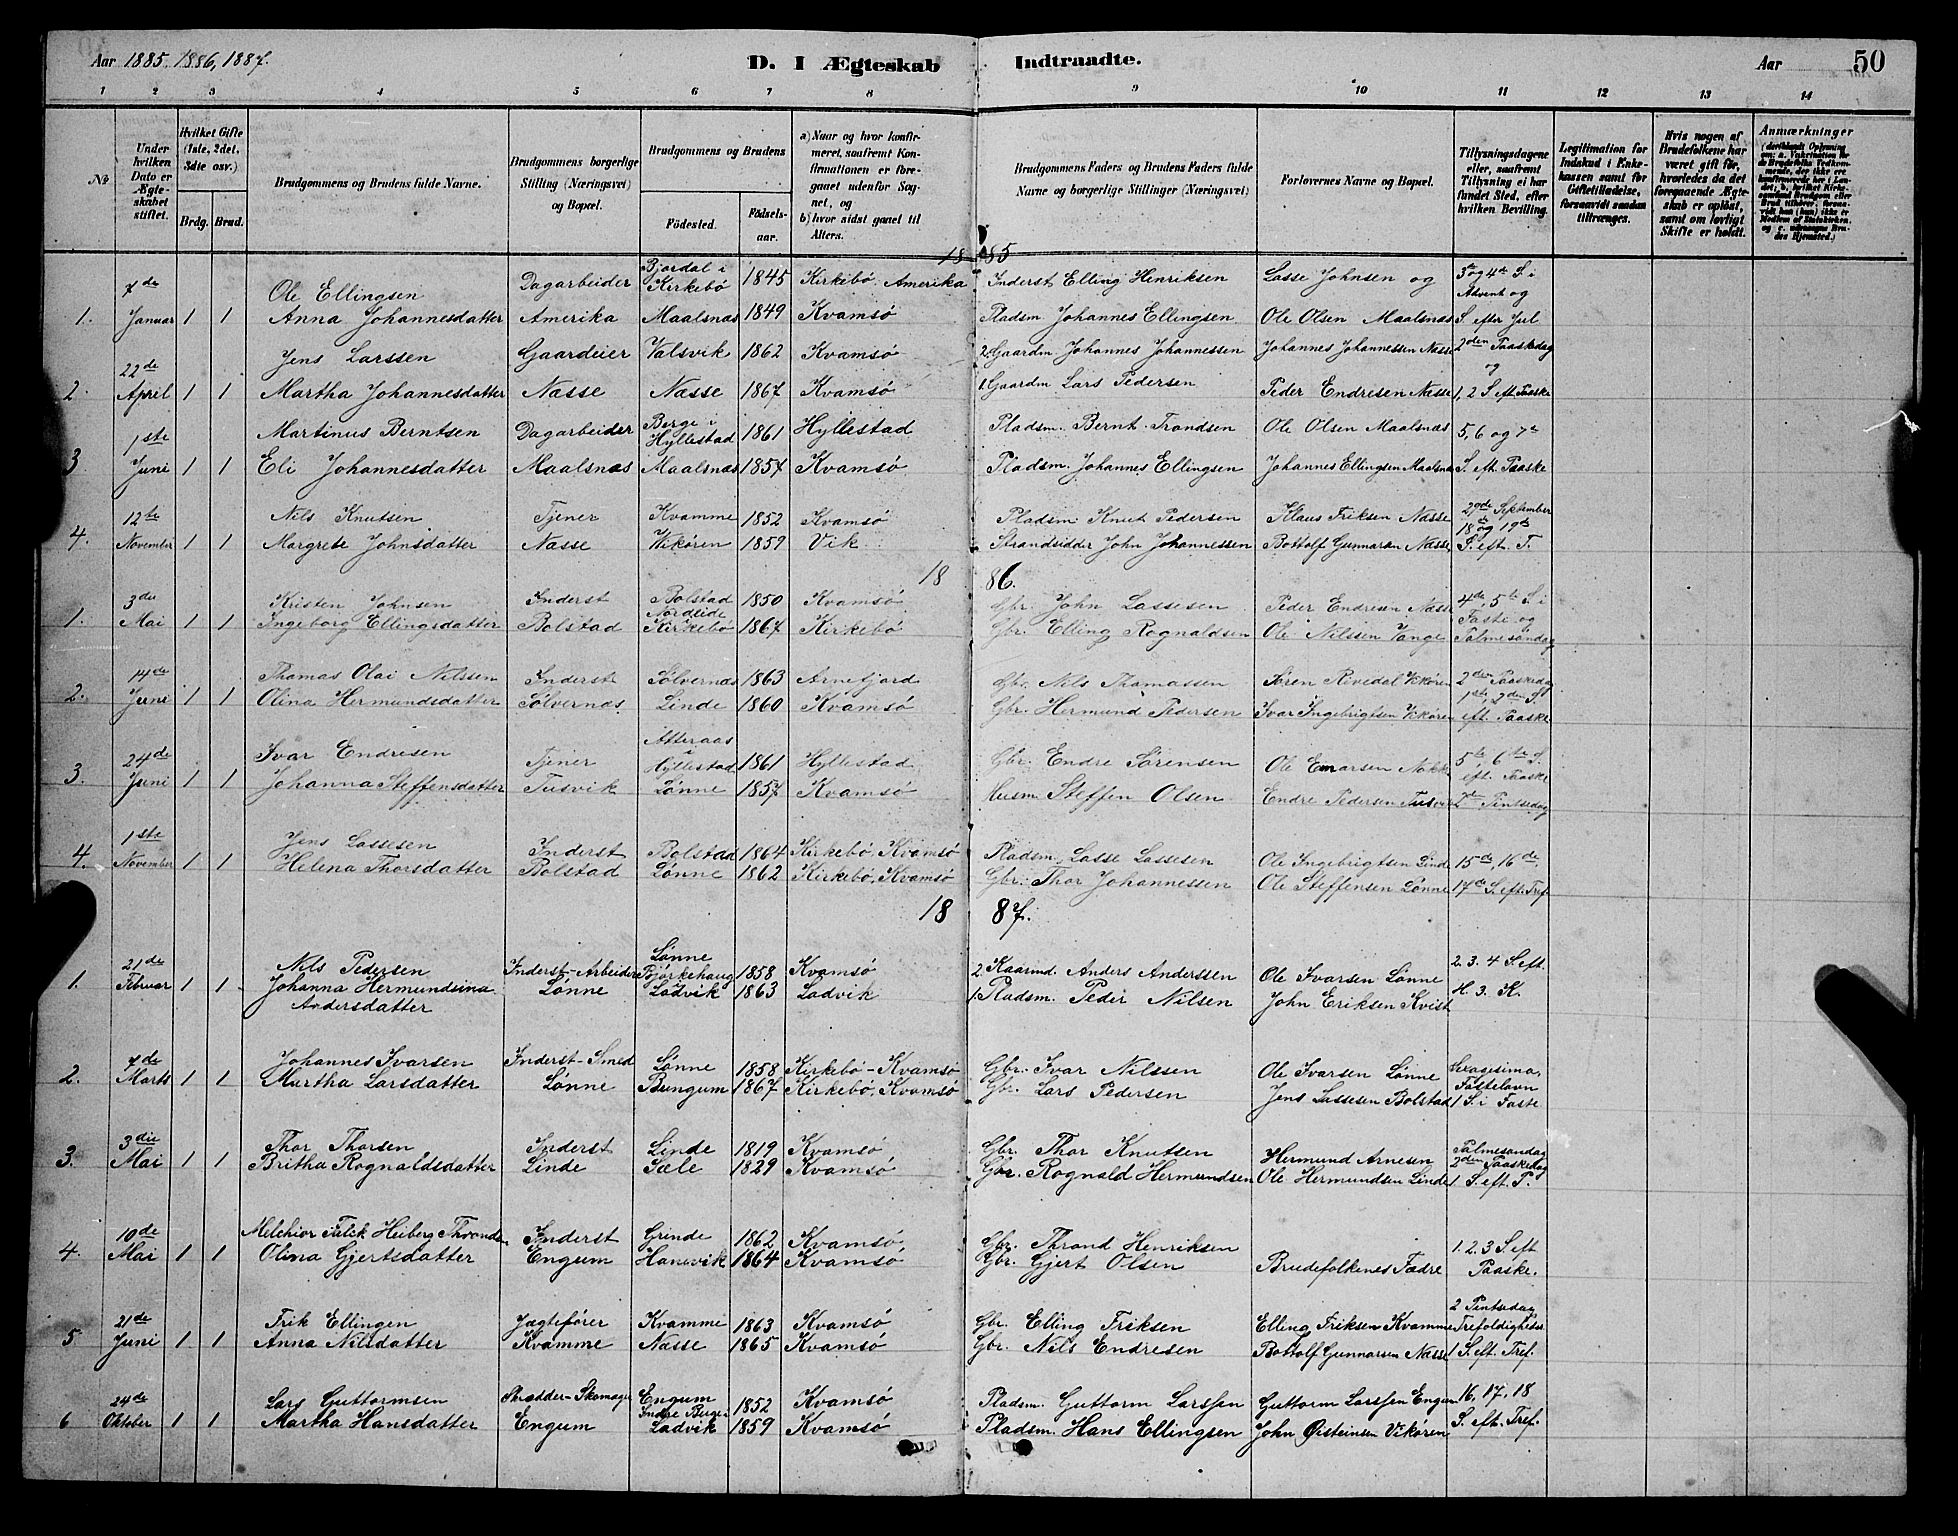 Aar 1885. 1886, 1887.
D. I Ægteskab Indtraadte.
Aar 50
1 2 3 4 5 6 7 8 9 10 11 12 13 14
No
Under hvilken Dato er Ægteskabet stiftet.
Hvilket Gifte (1ste, 2det, 3die osv.)
Brdg. Brud.
Brudgommens og Brudens fulde Navne.
Brudgommens borgerlige Stilling (Næringsvei) og Bopæl.
Brudgommens og Brudens
Födested.
Födselsaar.
a) Naar og hvor konfirmeret, saafremt Konfirmationen er foregaaet udenfor Sognet, og
b) hvor sidst gaaet til Alters.
Brudgommens Faders og Brudens Faders fulde Navne og borgerlige Stillinger (Næringsvei)
Forlovernes Navne og Bopæl.
Tillysningsdagene eller, saafremt Tillysning ei har fundet Sted, efter hvilken Bevilling.
Legitimation for Indskud i Enkekassen samt for Giftetilladelse, forsaavidt saadan tiltrænges.
Hvis nogen af Brudefolkene har været gift før, hvorledes da det foregaaende Ægteskab er oplöst, samt om lovligt Skifte er holdt.
Anmærkninger
1885
7de Ole Ellingsen Dagarbeider Bjordal i Kirkebö 1845 Kirkebö. Amerika Inderst Elling Henriksen Lasse Johnsen og 3die og 4de S. i Advent og
1. Januar 1 1 Anna Johannesdatter Amerika Maalsnas 1849 Kvamsö Pladsm Johannes Ellingsen Ole Olsen Maalsnas S. efter Jul
22de Jens Larssen Gaardeier Valsvik 1862 Kvamsö 2. Gaardm Johannes Johannessen Johannes Johannessen Nasse 2den Paaskedag og
2. April 1 1 Martha Johannesdatter Nasse Nasse 1867 Kvamsö 1. Gaardm Lars Pedersen Peder Endresen Nasse 1, 2 S. eft Paaske
1ste Martinus Berntsen Dagarbeider Berge i Hyllestad 1861 Hyllestad Pladsm. Bernt Trondsen Ole Olsen Maalsnas 5, 6 og 7de
3 Juni 1 1 Eli Johannesdatter Maalsnas Maalsnas 1857 Kvamsö Pladsm. Johannes Ellingsen Johannes Ellingsen Maalsna S. eft. Paaske
12te Nils Knutsen Tjener Kvamme 1852 Kvamsö Pladsm. Knut Pedersen Klaus Eriksen Nasse September 18de og 19de
4. November 1 1 Margrete Johnsdatter Nasse Vikören 1859 Vik Strandsidder John Johannessen Bottolf Gunnarsen Nasse S. eft. T.
1886.
3de Kristen Johnsen Inderst Bolstad 1850 Kvamsö Gbr. John Lassesen Peder Endresen Nasse 4de, 5te S. i Faste og
1. Mai 1 1 Ingeborg Ellingsdatter Bolstad Nordeide Kirkebö 1867 Kirkebö Gbr. Elling Rognaldsen Ole Nilssen Vange Palmesöndag
14de Thomas Olai Nilssen Inderst Sölvernas 1863 Arnefjord Gbr. Nils Thomassen Sören Rivedal Vikören 2den Paaskedag
2. Juni 1 1 Olina Hermundsdatter Sölvernas Linde 1860 Kvamsö Gbr. Hermund Pedersen Ivar Ingebrigtsen Vikören 1ste, 2den S. eft. Paaske
24de Ivar Endresen Tjener Atteraas i Hyllestad 1861 Hyllestad Gbr. Endre Sörensen Ole Nokk 5te, 6te S. eft. Paaske
3. Juni 1 1 Johanna Steffensdatter Tusvik Lönne 1857 Kvamsö Husm Steffen Olsen Endre Pedersen Tusvik 2de Pintsedag
1ste Jens Lassesen Inderst Bolstad 1864 Kirkebö, Kvamsö Pladsm. Lasse Lassesen Ole Ingebrigtsen Linde 15de, 16de,
4. November 1 1 Helena Thorsdatter Bolstad Lönne 1862 Kirkebö, Kvamsö Gbr. Thor Johannessen Ole Steffensen Lönne 17de S. eft. Tref.
1887.
21de Nils Pedersen Inderst-Arbeider Lönne Björkehaug 1858 Kvamsö 2. Anders Anderssen Ole Ivarsen Lönne 2. 3. 4 S. eft.
1. Februar 1 1 Johanna Hermundsina Andersdatter Lönne Ladvik 1863 Ladvik 1. Pladsm. Peder Nilsen John Eriksen Kvist H. 3. K.
7de Johannes Ivarsen Inderst-Smed Lönne 1858 Kirkebö-Kvamsö Gbr. Ivar Nilssen Ole Ivarsen Lönne Sexagesima, Fastelavn
2. Marts 1 1 Martha Larsdatter Lönne Bungum 1867 Kirkebö, Kvamsö Gbr. Lars Pedersen Jens Lassesen Bolstad 1 S. i Faste
3die Thor Thorsen Inderst Linde 1819 Kvamsö Gbr. Thor Knutsen Hermund Arnesen Palmesøndag 2den Paaskedag
3. Mai 1 1 Britha Rognaldsdatter Linde Sæle 1829 Kvamsö Gbr. Rognald Hermundsen Ole Hermundsen Linde 1 S. eft. P.
10de Melchior Falck Heiberg Throndsen Inderst Grinde 1862 Kvamsö Gbr. Thrond Henriksen 1. 2. 3 S. eft
4. Mai 1 1 Olina Gjertsdatter Engum Hanevik 1864 Kvamsö Gbr. Gjert Olsen Brudefolkenes Fædre Paaske.
21de Erik Ellingen Jagtefører Kvamme 1863 Kvamsö Gbr. Elling Eriksen Elling Eriksen Kvamme 2 Pintsedag Trefoldigheds
5. Juni 1 1 Anna Nilsdatter Kvamme Nasse 1865 Kvamsö Gbr. Nils Endresen Bottolf Gunnarsen Nasse 1 S. eft. Tref.
24de Lars Guttormsen Skrædder-Skomager Engum 1852 Kvamsö Pladsm. Guttorm Larssen Guttorm Larssen Engum 16, 17, 18
6 Oktober 1 1 Martha Hansdatter Engum Indre Berge Ladvik 1859 Kvamsö Pladsm. Hans Ellingsen John Øisteinsen Vikören S. eft. Tref.